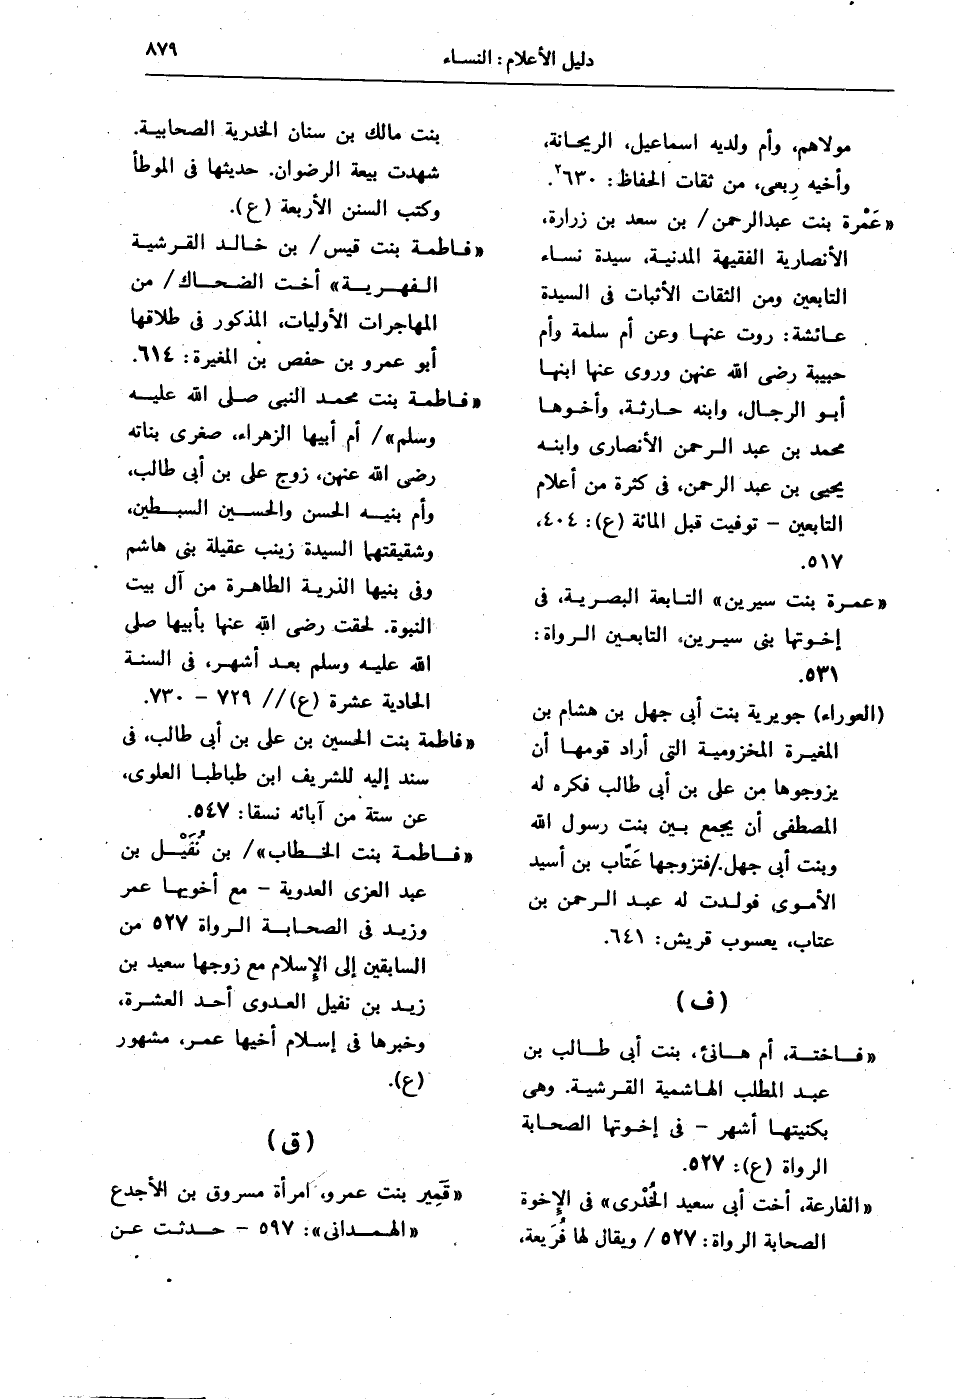 دليل الأعلام: النساء ٨٧٩
مولاهم، وأم ولديه اسماعيل، الريحانة،
وأخيه رِبعى، من ثقات الحفاظ: ٦٣٠٢.
«عَمْرة بنت عبدالرحمن/ بن سعد بن زرارة،
الأنصارية الفقيهة المدنية، سيدة نساء
التابعين ومن الثقات الأثبات فى السيدة
عائشة: روت عنها وعن أم سلمة وأم
حبيبة رضى الله عنهن وروى عنها ابنها
أبو الرجال، وابنه حارثة، وأخوها
محمد بن عبد الرحمن الأنصارى وابنه
يحيى بن عبد الرحمن، فى كثرة من أعلام
التابعين – توفيت قبل المائة (ع): ٤٠٤،
٥١٧.
«عمرة بنت سيرين» التابعة البصرية، فى
إخوتها بنى سيرين، التابعين الرواة:
٥٣١.
(العوراء) جويرية بنت أبى جهل بن هشام بن
المغيرة المخزومية التى أراد قومها أن
يزوجوها من على بن أبى طالب فكره له
المصطفى أن يجمع بين بنت رسول الله
وبنت أبى جهل./فتزوجها عَتّاب بن أسيد
الأموى فولدت له عبد الرحمن بن
عتاب، يعسوب قريش: ٦٤١.
(ف)
«فاختة، أم هانئ، بنت أبى طالب بن
عبد المطلب الهاشمية القرشية. وهى
بكنيتها أشهر – فى إخوتها الصحابة
الرواة (ع): ٥٢٧.
«الفارعة، أخت أبى سعيد الخُدْرى» فى الإخوة
الصحابة الرواة: ٥٢٧/ ويقال لها فُرَيعة،
بنت مالك بن سنان الخدرية الصحابية.
شهدت بيعة الرضوان. حديثها فى الموطأ
وكتب السنن الأربعة (ع).
«فاطمة بنت قيس/ بن خالد القرشية
الفهرية» أخت الضحاك/ من
المهاجرات الأوليات، المذكور فى طلاقها
أبو عمرو بن حفص بن المغيرة: ٦١٤.
«فاطمة بنت محمد النبى صلى الله عليه
وسلم»/ أم أبيها الزهراء، صغرى بناته
رضى الله عنهن، زوج على بن أبى طالب،
وأم بنيه الحسن والحسين السبطين،
وشقيقتهما السيدة زينب عقيلة بنى هاشم
وفى بنيها الذرية الطاهرة من آل بيت
النبوة. لحقت رضى الله عنها بأبيها صلى
الله عليه وسلم بعد أشهر، فى السنة
الحادية عشرة (ع)// ٧٢٩ – ٧٣٠.
«فاطمة بنت الحسين بن على بن أبى طالب، فى
سند إليه للشريف ابن طباطبا العلوى،
عن ستة من آبائه نسقا: ٥٤٧.
«فاطمة بنت الخطاب»/ بن نُفَيْل بن
عبد العزى العدوية – مع أخويها عمر
وزيد فى الصحابة الرواة ٥٢٧ من
السابقين إلى الإسلام مع زوجها سعيد بن
زيد بن نفيل العدوى أحد العشرة،
وخبرها فى إسلام أخيها عمر، مشهور
(ع).
(ق)
«قَمِير بنت عمرو، امرأة مسروق بن الأجدع
«الهمدانى»: ٥٩٧ – حدثت عن